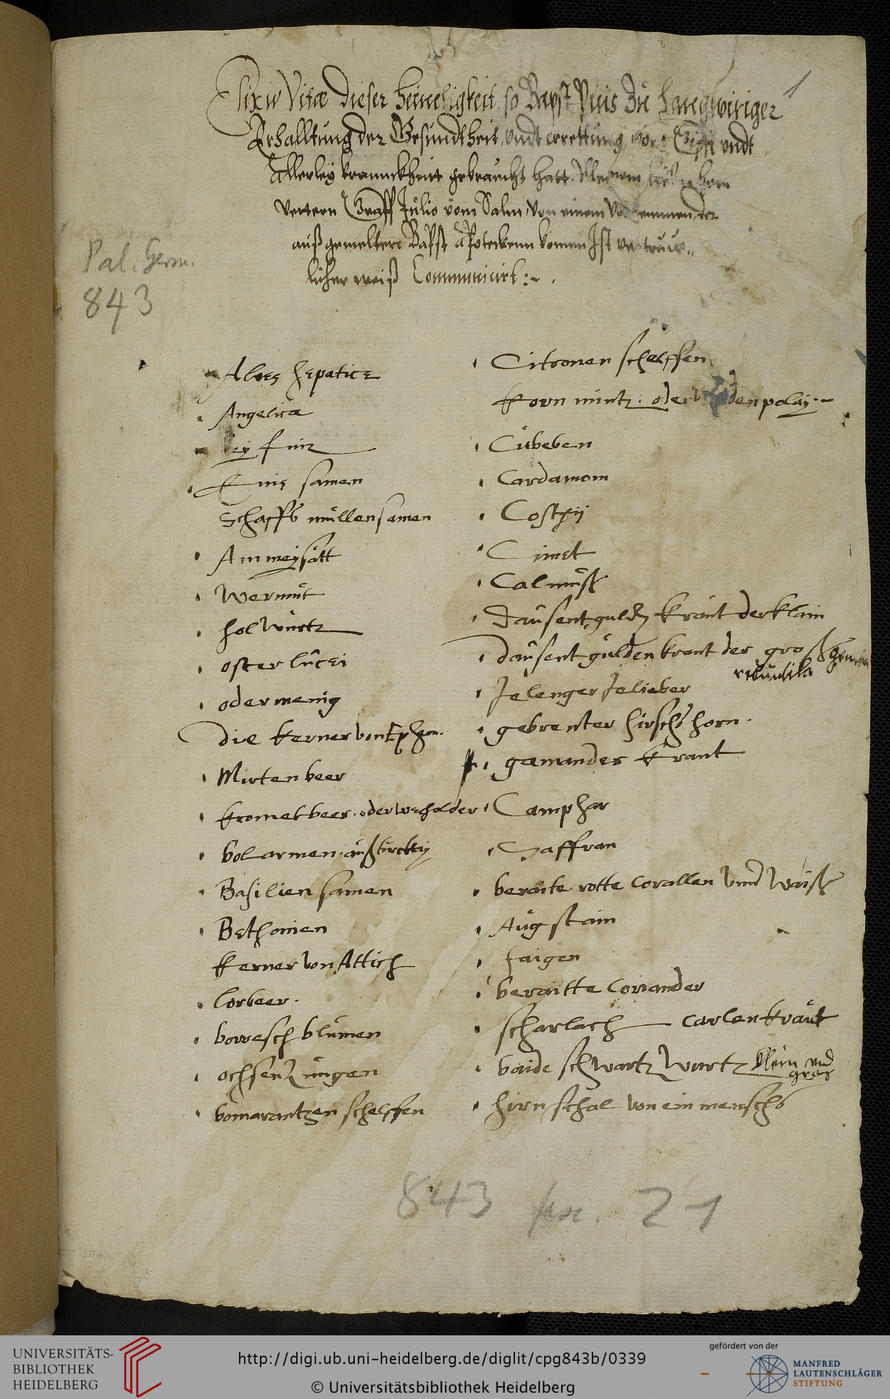 1
Elixir Vitae dieser heimligkeit so Bapst Pius Zu Langwiriger
Erhalltung der Gesundtheit, undt errettung vor Gifft undt
Allerley krannckheitt gebraucht hatt
Vettern Graff Julio vom Salm, Von einem der
auß gemelltens Bapst Apotecken komen Ist
licher weiß Communicirt:~.
Pal. Germ.
843
Aloes hepatice
Angelica
samen
Schaffs müllen samen
Ammeysätt
Wermüt
holwürtz
osterlücei
odermenig
die kerner von Ephen.
Mirtenbeer
kromatbeer. oder wecholder
bolarmen. auß türckey
Basilien samen
Bethonien
kerner von Attich
lorbeer.
borresch blümen
ochsenzüngen
bomarantzen schelffen
Citronen schelffen
korn mintz. oder denpolay.~
Cübeben
Cardamom
Costy
Cimet
Calmüß
daüsentguldn kraüt der klain
daüsentgülden kraut der groß
Jelenger Jelieber
gebrenter hirsch horn.
gamandes kraut
Camphar
Saffran
beraite rotte Corallen Vnd Waiß
Augstain
faigen
beraitte Coriander
scharlach carlenkraüt
baide schwartzwurtz klein vnd
groß
hirnschal von ein menschs
843 21
UNIVERSITÄTS-
BIBLIOTHEK
HEIDELBERG
http://digi.ub.uni-heidelberg.de/diglit/cpg843b/0339
© Universitätsbibliothek Heidelberg
gefördert von der
MANFRED
LAUTENSCHLÄGER
STIFTUNG